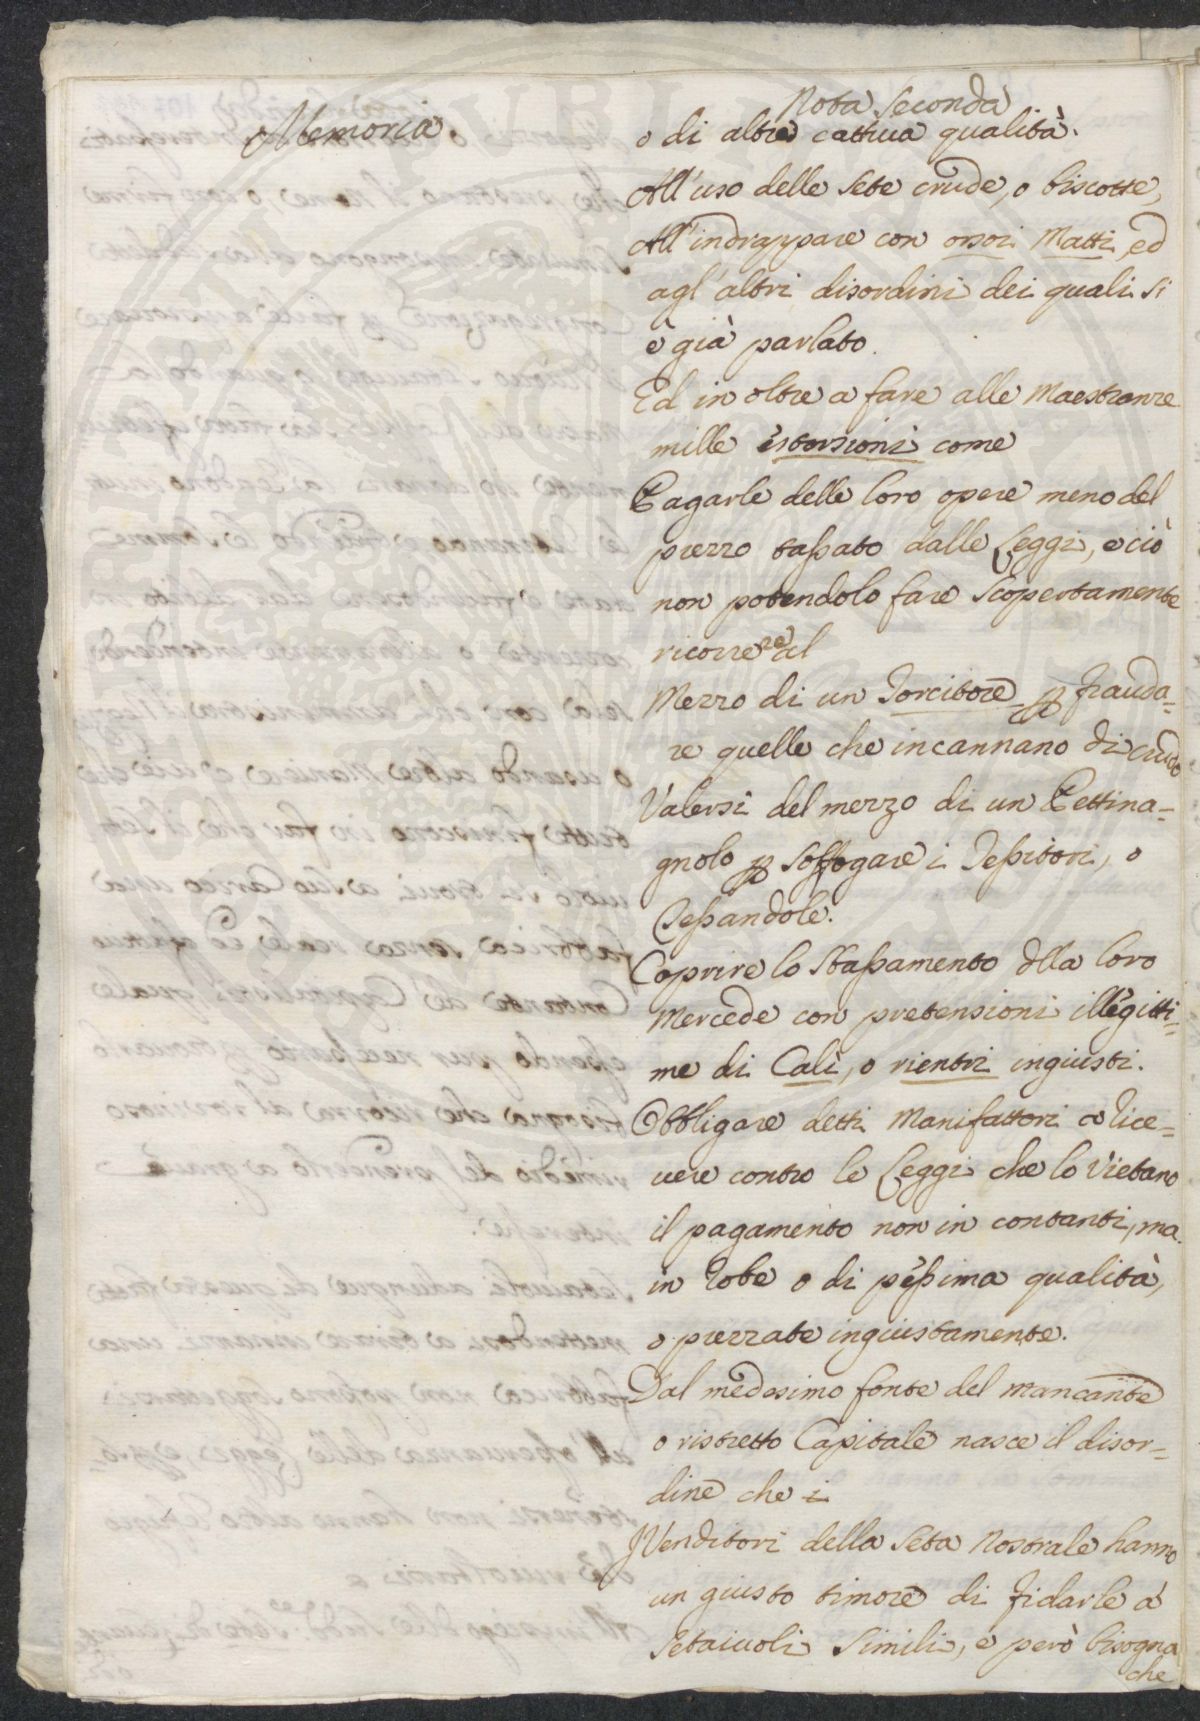 Memoria
Nota Seconda
o di altre cattiva qualità.
All'uso delle Sete crude, o biscotte,
All'indrappare con orsoi Matti, ed
agl'altri disordini dei quali si
è già parlato.
Ed in oltre a fare alle Maestranze
mille estorsioni come
Pagarle delle loro opere meno del
prezzo tassato dalle Leggi, e ciò
non potendolo fare Scopertamente
ricorrere al
Mezzo di un Torcitore p frauda=
re quelle che incannano di crudo
Valersi del mezzo di un Pettina=
gnolo p soffogare i Tessitori, o
Tessandole.
Coprire lo Stassamento dlla loro
Mercede con pretensioni illegitti=
me di Cali, o rientri ingiusti.
Obbligare detti Manifattori a rice=
vere contro le Leggi che lo Vietano
il pagamento non in contanti, ma
in robe o di pessima qualità,
o prezzate ingiustamente.
Dal medesimo fonte del mancante
o ristretto Capitale nasce il disor=
dine che i
Venditori della Seta Nostrale hanno
un giusto timore di fidarle a
Setaiuoli Simili, e però bisogna
che